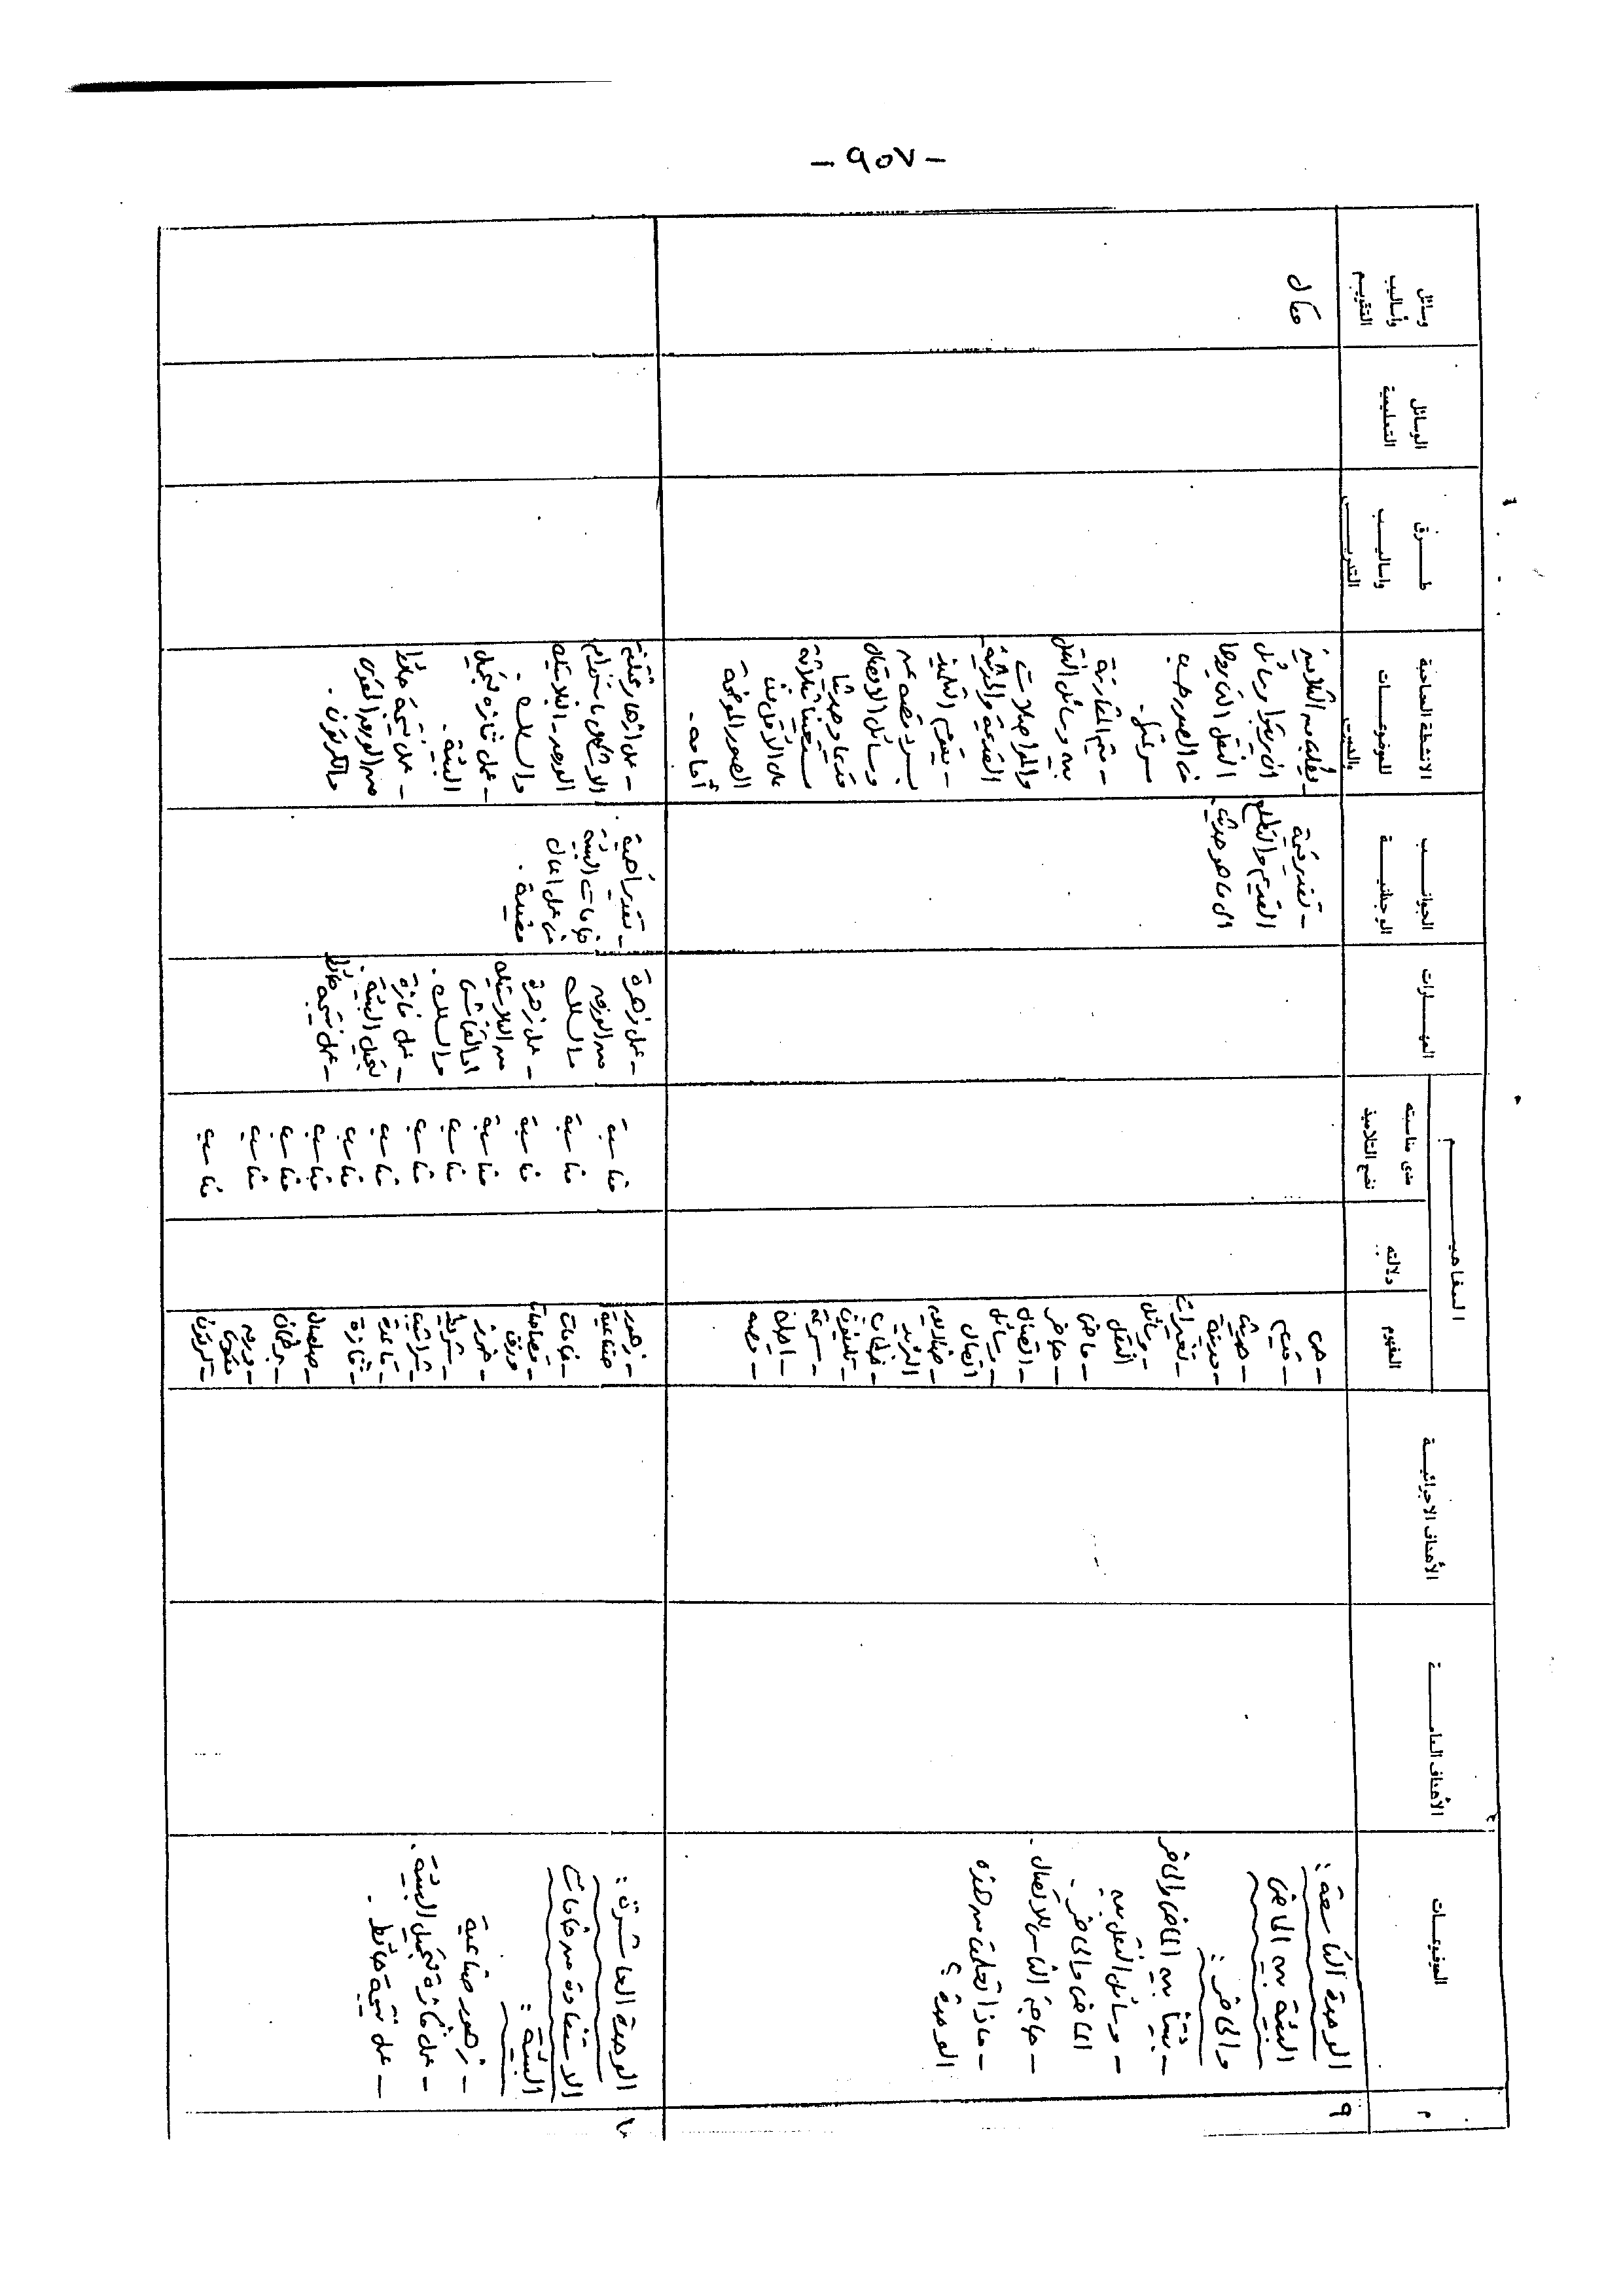 - ٩٥٧ -
م
الموضوعات
الأهداف العامة
الأهداف الاجرائية
المفاهيم
المفهوم
دلالته
مدى مناسبته
نضج التلاميذ
المهارات
الجوانب
الوجدانية
الانشطة المصاحبة
للموضوعات
طرق
واساليب
التدريس
الوسائل
التعليمية
وسائل
وأساليب
التقويم
٩
الوحدة التاسعة :
البيئة بين الماضى
والحاضر :
- بيئتنا بين الماضى والحاضر
- وسائل النقل بين
الماضى والحاضر .
- حاجة الناس للاتصال .
- ماذا تعلمت من هذه
الوحدة ؟
- مضى
- قديم
- حديث
- حديثة
- تغيرات
- وسائل
النقل
- ماضى
- حاضر
- اتصال
- وسائل
اتصال
- صناديق
البريد
- خطابات
- تليفون
- سرعة
- قصة
- تقدير قيمة
القديم والتطلع
الى ما هو حديث
- يطلب من التلاميذ
ان يرتبوا وسائل
النقل التى يروها
فى الصور
- تتم المقارنة
بين وسائل النقل
والمواصلات
القديمة والحديثة
- يقوم التلميذ
بسرد قصة عن
وسائل الاتصال
قديما وحديثا
مستعينا بثلاثة
على الأقل من
الصور الموضحة
أمامه .
مقال
١٠
الوحدة العاشرة :
الاستفادة من خامات
البيئة :
- زهور صناعية
- عمل فازة تجميل البيئة .
- عمل نتيجة حائط .
- زهور
صناعية
- خامات
- قصاصات
ورق
- خرز
- شريط
- شراشيب
- قاعدة
- فازة
- صلصال
- برطمان
- ورق
مقوى
- كرتون
مناسبة
مناسبة
مناسبة
مناسبة
مناسب
مناسب
مناسب
مناسب
مناسب
مناسب
مناسب
مناسب
- عمل زهرة
من الورق
والسلك
- عمل زهرة
من البلاستيك
او القماش
والسلك .
- عمل فازة
تجميل البيئة .
- عمل نتيجة حائط
- تقدير أهمية
خامات البيئة
فى عمل اعمال
مفيدة .
- عمل ازهار مختلفة
الاشكال باستخدام
الورق - البلاستيك
والسلك .
- عمل فازة تجميل
البيئة .
- عمل نتيجة حائط
من الورق المقوى
والكرتون .